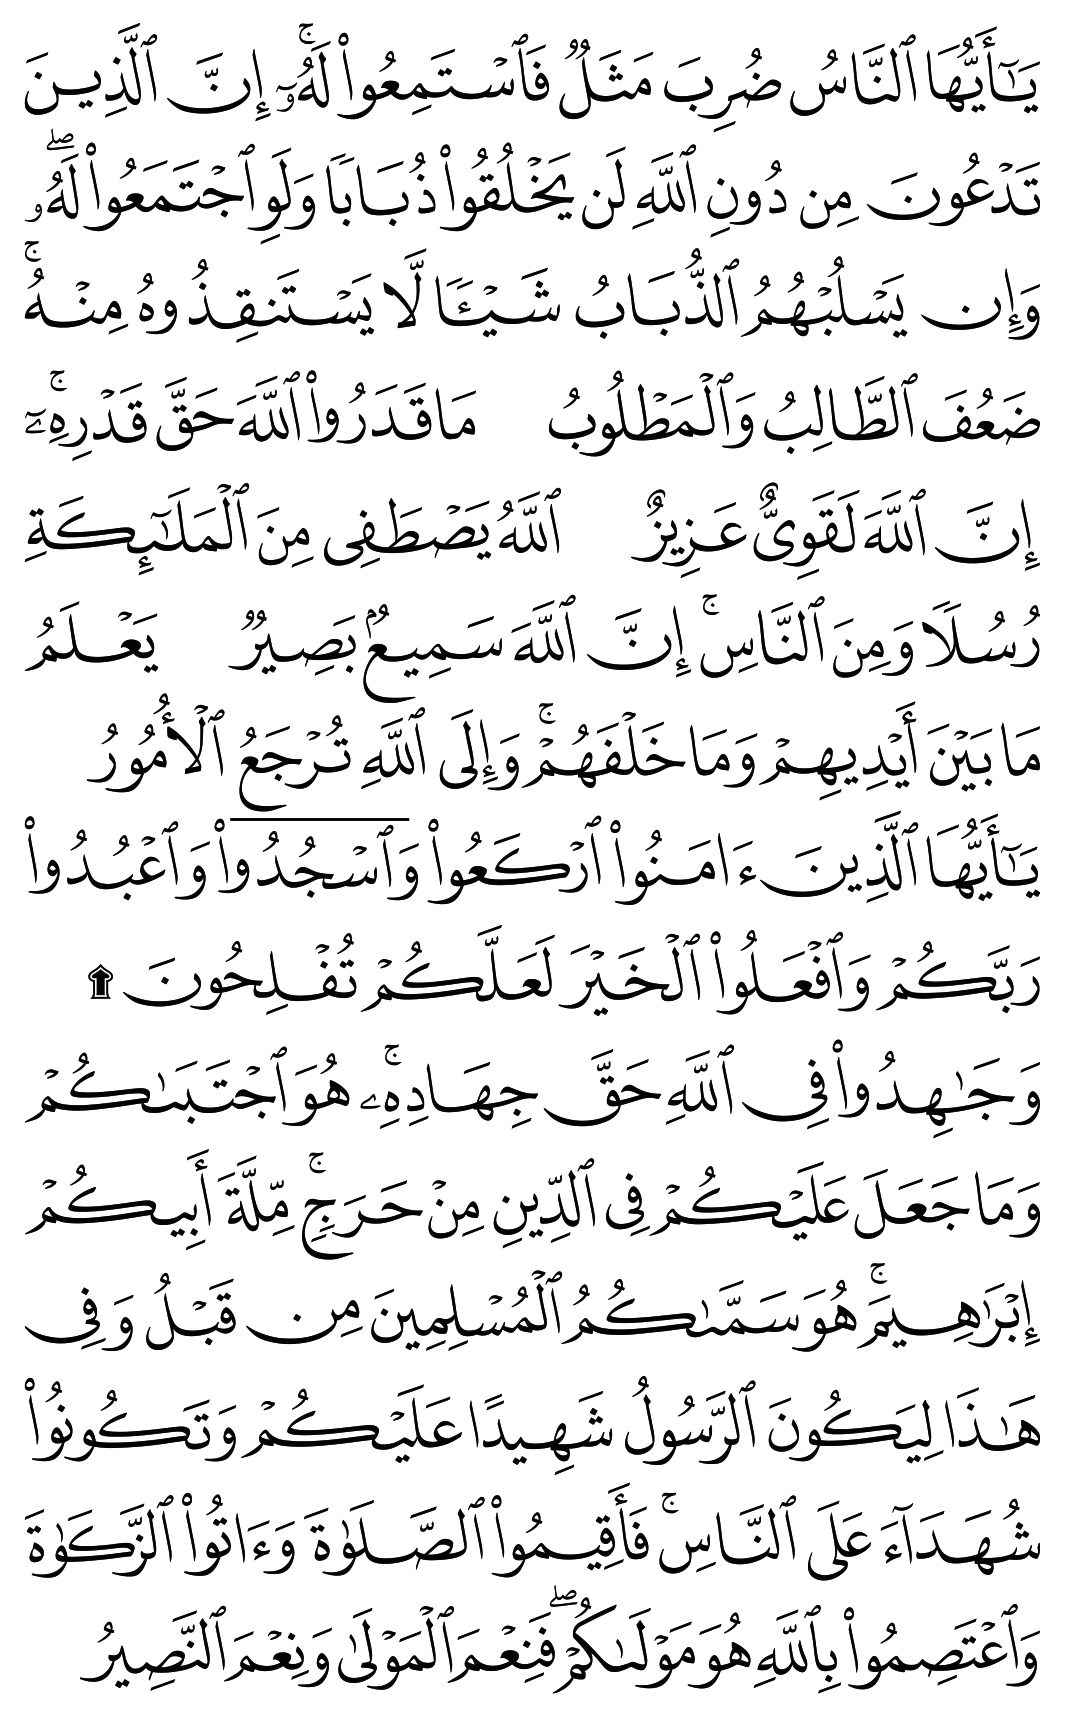 يَـٰٓأَيُّهَا ٱلنَّاسُ ضُرِبَ مَثَلٌ فَٱسْتَمِعُوا۟ لَهُۥٓ ۚ إِنَّ ٱلَّذِينَ
تَدْعُونَ مِن دُونِ ٱللَّهِ لَن يَخْلُقُوا۟ ذُبَابًا وَلَوِ ٱجْتَمَعُوا۟ لَهُۥ ۖ
وَإِن يَسْلُبْهُمُ ٱلذُّبَابُ شَيْـًٔا لَّا يَسْتَنقِذُوهُ مِنْهُ ۚ
ضَعُفَ ٱلطَّالِبُ وَٱلْمَطْلُوبُ مَا قَدَرُوا۟ ٱللَّهَ حَقَّ قَدْرِهِۦٓ ۚ
إِنَّ ٱللَّهَ لَقَوِىٌّ عَزِيزٌ ٱللَّهُ يَصْطَفِى مِنَ ٱلْمَلَـٰٓئِكَةِ
رُسُلًا وَمِنَ ٱلنَّاسِ ۚ إِنَّ ٱللَّهَ سَمِيعٌۢ بَصِيرٌ يَعْلَمُ
مَا بَيْنَ أَيْدِيهِمْ وَمَا خَلْفَهُمْ ۚ وَإِلَى ٱللَّهِ تُرْجَعُ ٱلْأُمُورُ
يَـٰٓأَيُّهَا ٱلَّذِينَ ءَامَنُوا۟ ٱرْكَعُوا۟ وَٱسْجُدُوا۟ وَٱعْبُدُوا۟
رَبَّكُمْ وَٱفْعَلُوا۟ ٱلْخَيْرَ لَعَلَّكُمْ تُفْلِحُونَ ۩
وَجَـٰهِدُوا۟ فِى ٱللَّهِ حَقَّ جِهَادِهِۦ ۚ هُوَ ٱجْتَبَىٰكُمْ
وَمَا جَعَلَ عَلَيْكُمْ فِى ٱلدِّينِ مِنْ حَرَجٍ ۚ مِّلَّةَ أَبِيكُمْ
إِبْرَٰهِيمَ ۚ هُوَ سَمَّىٰكُمُ ٱلْمُسْلِمِينَ مِن قَبْلُ وَفِى
هَـٰذَا لِيَكُونَ ٱلرَّسُولُ شَهِيدًا عَلَيْكُمْ وَتَكُونُوا۟
شُهَدَآءَ عَلَى ٱلنَّاسِ ۚ فَأَقِيمُوا۟ ٱلصَّلَوٰةَ وَءَاتُوا۟ ٱلزَّكَوٰةَ
وَٱعْتَصِمُوا۟ بِٱللَّهِ هُوَ مَوْلَىٰكُمْ ۖ فَنِعْمَ ٱلْمَوْلَىٰ وَنِعْمَ ٱلنَّصِيرُ